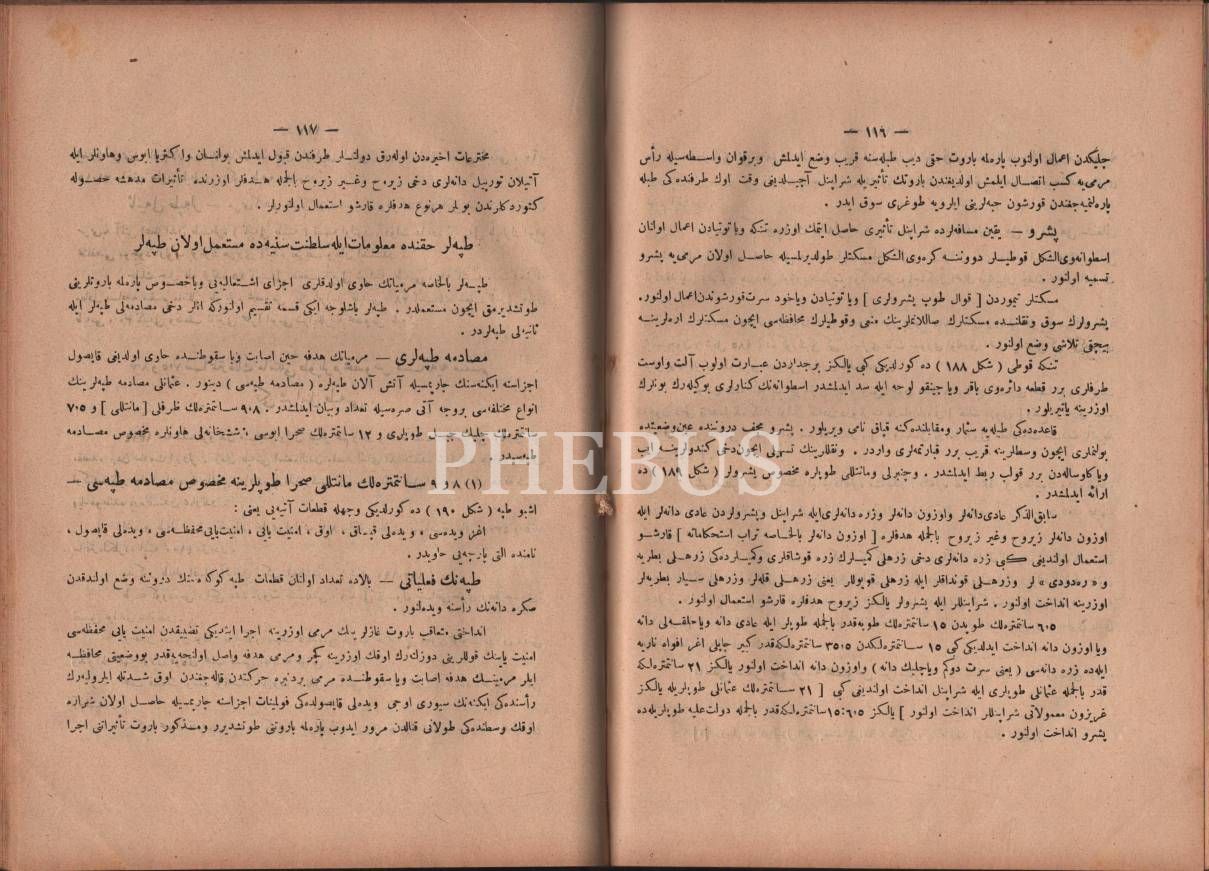 — ١١٦ —
چلیكدن اعمال اولنوب پاره‌لمه باروت حقی دیب طبله‌سنه قریب وضع ایدلمش وبرقوان واسطه‌سیله رأس
مرمی‌یه كسب اتصال ایلمش اولدیغندن باروتك تأثیریله شراپنل آچیلدیغی وقت اوك طرفنده‌كی طبله
پاره‌لنمیه‌جغندن قورشون حبه‌لرینی ایلرویه طوغری سوق ایدر .
پشرو — یقین مسافه‌لرده شراپنل تأثیری حاصل ایتمك اوزره تنكه ویا توتیادن اعمال اولنان
اسطوانه‌وی‌الشكل قوطیلر دروننه كره‌وی‌الشكل مسكتلر طولدیرلمسیله حاصل اولان مرمی‌یه پشرو
تسمیه اولنور .
مسكتلر تیموردن [ قوال طوپ پشرولری ] ویا توتیادن ویاخود سرت قورشوندن اعمال اولنور.
پشرولرك سوق ونقلنده مسكتلرك صاللانملرینك منعی وقوطیلرك محافظه‌سی ایچون مسكتلرك آره‌لرینه
بیچقی تلاشی وضع اولنور .
تنكه قوطی ( شكل ١٨٨ ) ده كورلدیكی كبی یالكز برجداردن عبارت اولوب آلت واوست
طرفلری برر قطعه دائره‌وی باقر ویا چینقو لوحه ایله سد ایدلمشدر اسطوانه‌نك كنارلری بوكیله‌رك بونلرك
اوزرینه یاتیریلور .
قاعده‌ده‌كی طبله‌یه ومقابلنده‌كنه قپاق نامی ویریلور . پشرو مجف دروننده عین وضعیتده
بولنملری ایچون وسطلرینه قریب برر قبارتمه‌لری واردر . ونقللرینك تسهیلی ایچون‌دخی كندولرینه ایپ
ویا كاوساله‌دن برر قولپ ربط ایدلمشدر . وچنبرلی ومانتللی طوپلره مخصوص پشرولر ( شكل ١٨٩ ) ده
ارائه ایدلمشدر .
سابق‌الذكر عادی دانه‌لر واوزون دانه‌لر وزره دانه‌لری‌ایله شراپنل وپشرولردن عادی دانه‌لر ایله
اوزون دانه‌لر زیروح وغیر زیروح بالجمله هدفلره [ اوزون دانه‌لر بالخاصه تراب استحكاماته ] قارشو
استعمال اولندیغی كبی زره دانه‌لری دخی زرهلی كمیلرك زره قوشاقلری وكمیلرده‌كی زرهلی بطریه
و « ره‌دودی » لر وزرهلی قونداقلر ایله زرهلی قوپوللر یعنی زرهلی قله‌لر وزرهلی سیار بطریه‌لر
اوزرینه انداخت اولنور . شراپنللر ایله پشرولر یالكز زیروح هدفلره قارشو استعمال اولنور .
٦٫٥ سانتمتره‌لك طوپدن ١٥ سانتمتره‌لك طوبه‌قدر بالجمله طوپلر ایله عادی دانه ویاحلقه‌لی دانه
ویا اوزون دانه انداخت ایدلدیكی كبی ١٥ سانتمتره‌لكدن ٣٥٫٥ سانتمتره‌لكه‌قدر كبیر چاپلی اغر افواه ناریه
ایله‌ده زره دانه‌سی ( یعنی سرت دوكم ویاچلیك دانه ) واوزون دانه انداخت اولنور یالكز ٢١ سانتمتره‌لكه
قدر بالجمله عثمانلی طوپلری ایله شراپنل انداخت اولندیغی كبی [ ٢١ سانتمتره‌لك عثمانلی طوپلریله یالكز
غریزون معمولاتی شراپنللر انداخت اولنور ] یالكز ١٥٫٦٫٥ سانتمتره‌لكه‌قدر بالجمله دولت‌علیه طوپلریله‌ده
پشرو انداخت اولنور .
— ١١٧ —
مخترعات اخیره‌دن اوله‌رق دولتلر طرفندن قبول ایدلمش بولنان وا كثریا ابوس وهاونلر ایله
آتیلان تورپیل دانه‌لری دخی زیروح وغیر زیروح بالجمله هدفلر اوزرنده تأثیرات مدهشه حصوله
كتوردكلرندن بونلر هرنوع هدفلره قارشو استعمال اولنورلر .
طپه‌لر حقنده معلومات ایله سلطنت سنیه‌ده مستعمل اولان طپه‌لر
طپه‌لر بالخاصه مرمیاتك حاوی اولدقلری اجزای اشتعالیه‌یی وباخصوص پاره‌لمه باروتلرینی
طوتشدیرمق ایچون مستعملدر . طپه‌لر باشلوجه ایكی قسمه تقسیم اولنوركه آنلر دخی مصادمه‌لی طپه‌لر ایله
ثانیه‌لی طپه‌لردر .
مصادمه طپه‌لری — مرمیاتك هدفه حین اصابت ویا سقوطنده حاوی اولدیغی قاپصول
اجزاسنه ایكنه‌سنك چارپمسیله آتش آلان طپه‌لره ( مصادمه طپه‌سی ) دینور . عثمانلی مصادمه طپه‌لرینك
انواع مختلفه‌سی بروجه آتی صره‌سیله تعداد وبیان ایدلمشدر . ٩٫٠٨ سانتمتره‌لك ظرفلی [ مانتللی ] و ٧٫٠٥
سانتمتره‌لك چلیك جبل طوپلری و ١٢ سانتمتره‌لك صحرا ابوسی ، ششخانه‌لی هاونلره مخصوص مصادمه
طپه‌سیدر .
(١) ٨ و ٩ سانتمتره‌لك مانتللی صحرا طوپلرینه مخصوص مصادمه طپه‌سی —
اشبو طپه ( شكل ١٩٠ ) ده كورلدیكی وجهله قطعات آتیه‌یی یعنی :
اغز ویده‌سی ، ویده‌لی قپاق ، اوقی ، امنیت یایی ، امنیت‌یایی‌محفظه‌سی ، ویده‌لی قاپصول ،
نامنده التی پارچه‌یی حاویدر .
طپه‌نك فعلیاتی — بالاده تعداد اولنان قطعات طپه كوكده‌سنك دروننه وضع اولندقدن
صكره دانه‌نك رأسنه ویده‌لنور .
انداختی متعاقب باروت غازلرینك مرمی اوزرینه اجرا ایتدیكی تضییقدن امنیت یایی محفظه‌سی
امنیت یاینك قوللرینی دوزه‌رك اوقك اوزرینه كچر ومرمی هدفه واصل اولنجه‌یه‌قدر بووضعیتی محافظه
ایلر مرمینك هدفه اصابت ویا سقوطنده مرمی بردنبره حركتدن قاله‌جغندن اوق شدتله ایلرولیه‌رك
رأسنده‌كی ایكنه‌نك سیوری اوجی ویده‌لی قاپصولده‌كی فولمینات اجزاسنه چارپمسیله حاصل اولان شراره
اوقك وسطنده‌كی طولانی قنالدن مرور ایدوب پاره‌لمه باروتنی طوتشدیرر ومذكور باروت تأثیراتنی اجرا
PHEBUS